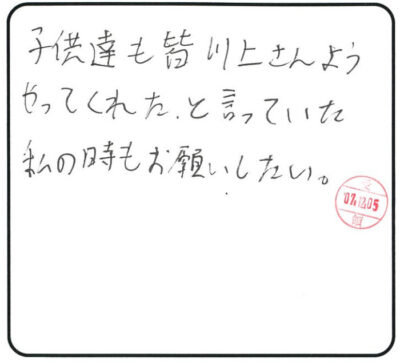 子供達も皆川上さんよう
やってくれた、と言っていた
私の時もお願いしたい。
'07.12.05